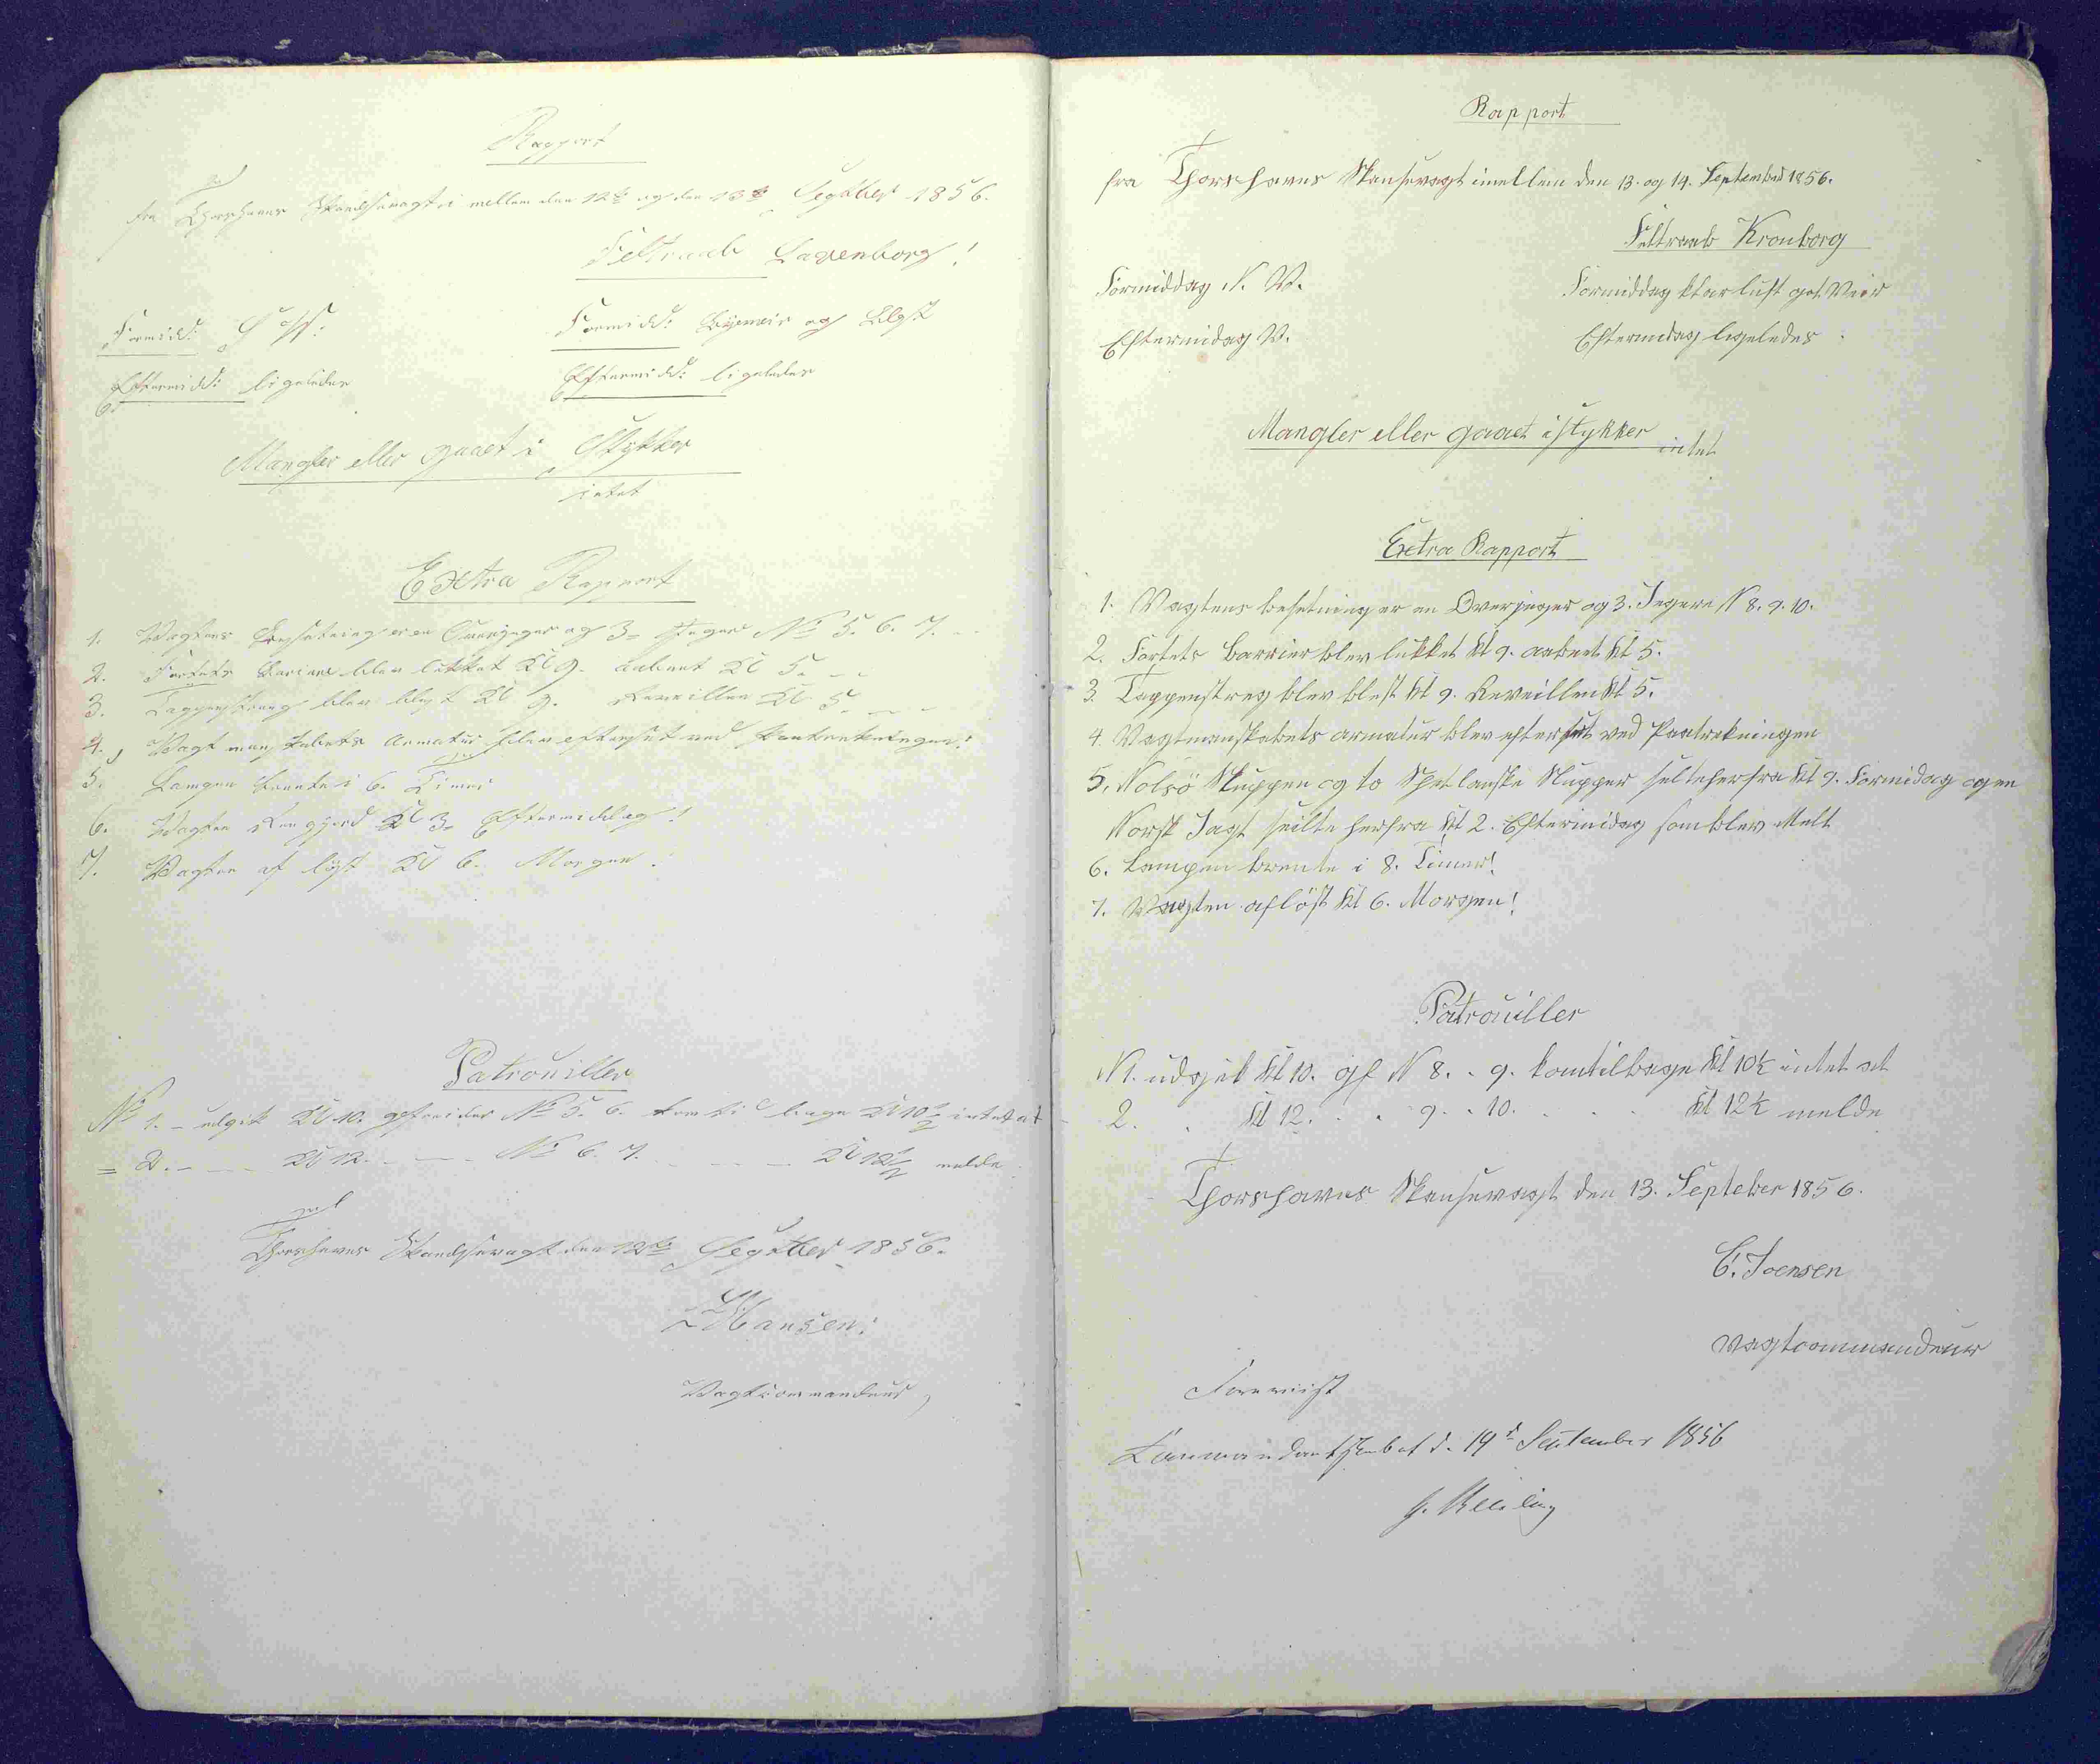 Rapport
fra Thorshavns Skandsevagt i mellem den 12te og den 13de Septber 1856.
Feltraab Laxenborg!
Formidd:
Formidd: Byeveir og Blæst
Eftermidd: ligeledes
Eftermidd: ligeledes
Mangler eller gaaet i Stykker
intet
Extra Rapport
1. Vagtens Besætning er en Overjæger og 3 Jæger No 5. 6. 7.
2. Fortets Bariere blev lukket Kl 9. aabnet Kl 5.
3. Tappenstreeg blev blæst Kl 9. Reveillen Kl 5.
4. Vagtmanskabets Armatur blev efterset ved Paatrækningen!
5. Lampen brænte i 6. Timer
6. Vagten Rengjord Kl 3. Eftermiddag!
7. Vagten af løst Kl 6. Morgen!
Patrouiller
No 1. udgik Kl 10. gefreider No 5. 6. kom tilbage Kl 10 1/2 intet at
2. Kl 12. No 6. 7. Kl 12 1/2 melde
Thorshavns Skandsevagt den 12te Septber 1856.
Hansen:
Vagtcommandeur
Rapport
fra Thorshavns Skansevagt imellem den 13. og 14. September 1856.
Feltraab Kronborg
Formiddag N. V.
Formiddag klar luft got Veir
Eftermidag V.
Eftermidag ligeledes
Mangler eller gaaet istykker intet
Extra Rapport
1. Vagtens besetning er en Overjeger og 3. Jegere N 8. 9. 10.
2. Fortets Barrier blev lukket kl 9. aabnet kl 5.
3. Tappenstreg blev blest kl 9. Reveillen kl 5.
4. Vagtmanskabets armatur blev efterset ved Paatrekningen
5. Nolsö Sluppen og to Shetlanske Slupper seilte herfra kl 9. Formidag og en
Norsk Jagt seilte herfra kl 2. Eftermidag som blev Melt
6. Lampen brente i 8. Timer!
7. Vagten aflöst kl 6. Morgen!
Patrouiller
N 1. udgik kl 10. gf N 8. . 9. kom tilbage kl 10½ intet at
2. . kl 12. . . 9. . 10. . . . kl 12½ melde
Thorshavns Skansevagt den 13. Septeber 1856.
C. Joensen
Vagtcommandeur
Foreviist
Commandantskabet d. 19d September 1856